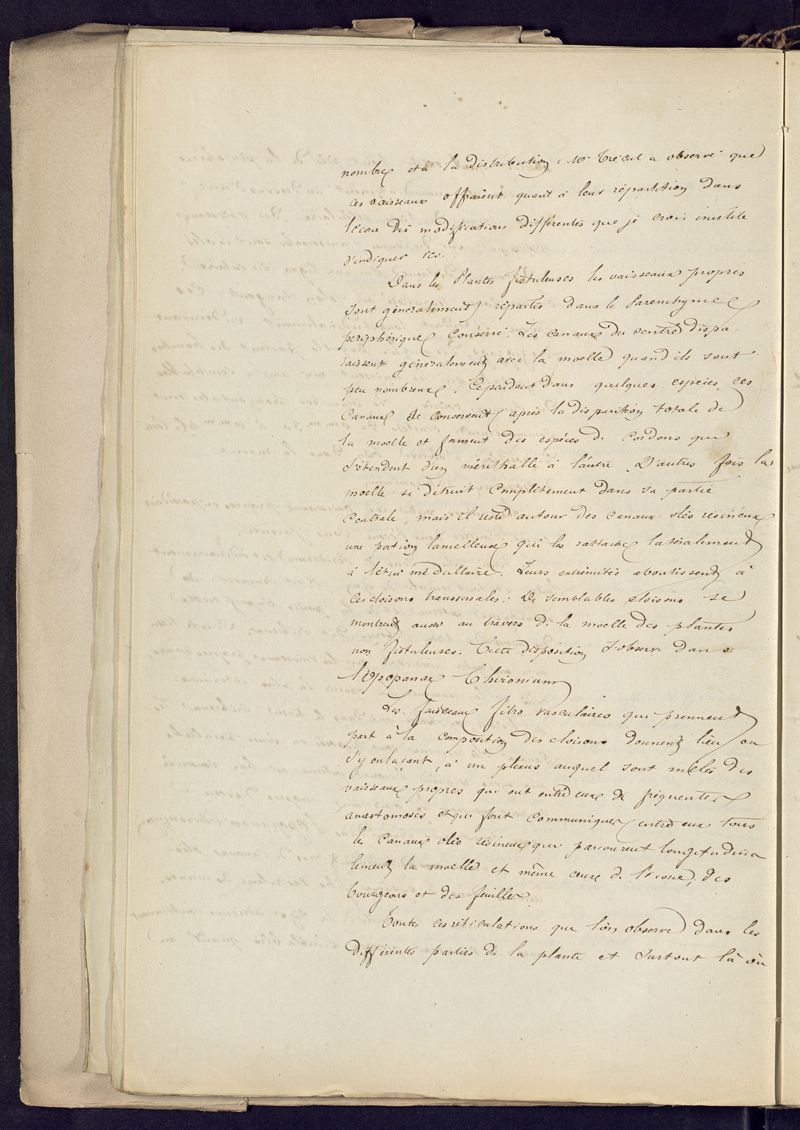 nombre et à la distribution, Mr Trécul a observé que
ces vaisseaux offraient quant à leur répartition dans
l'écorce des modifications différentes que je crois inutile
d'indiquer ici.
Dans les Plantes fistuleuses les vaisseaux propres
sont généralement répartis dans le Parenchyme
périphérique conservé. Les canaux du centre dispa-
raissent généralement avec la moelle quand ils sont
peu nombreux. Cependant dans quelques espèces, ces
canaux se conservent après la disparition totale de
la moelle et forment des espèces de cordons qui
s'étendent d'un mérithalle à l'autre. D'autres fois la
moelle se détruit complètement dans sa partie
centrale, mais il reste autour des canaux oléo résineux
une portion lamelleuse qui les rattache latéralement
à l'étui médullaire. Leurs extrémités aboutissent à
ces cloisons transversales. De semblables cloisons se
montrent aussi au travers de la moelle des plantes
non fistuleuses. Cette disposition s'observe dans
l'Opopanax Chironium
Les faisceaux fibro vasculaires qui prennent
part à la composition des cloisons donnent lieu en
s'y enlaçant, à un plexus auquel sont mêlés des
vaisseaux propres qui ont entre eux de fréquentes
anastomoses et qui font communiquer entre eux tous
les canaux oléo résineux qui parcourent longitudina
lement la moelle et même ceux de l'écorce, des
bourgeons et des feuilles.
Toute ces réticulations que l'on observe dans les
différentes parties de la plante et surtout là où